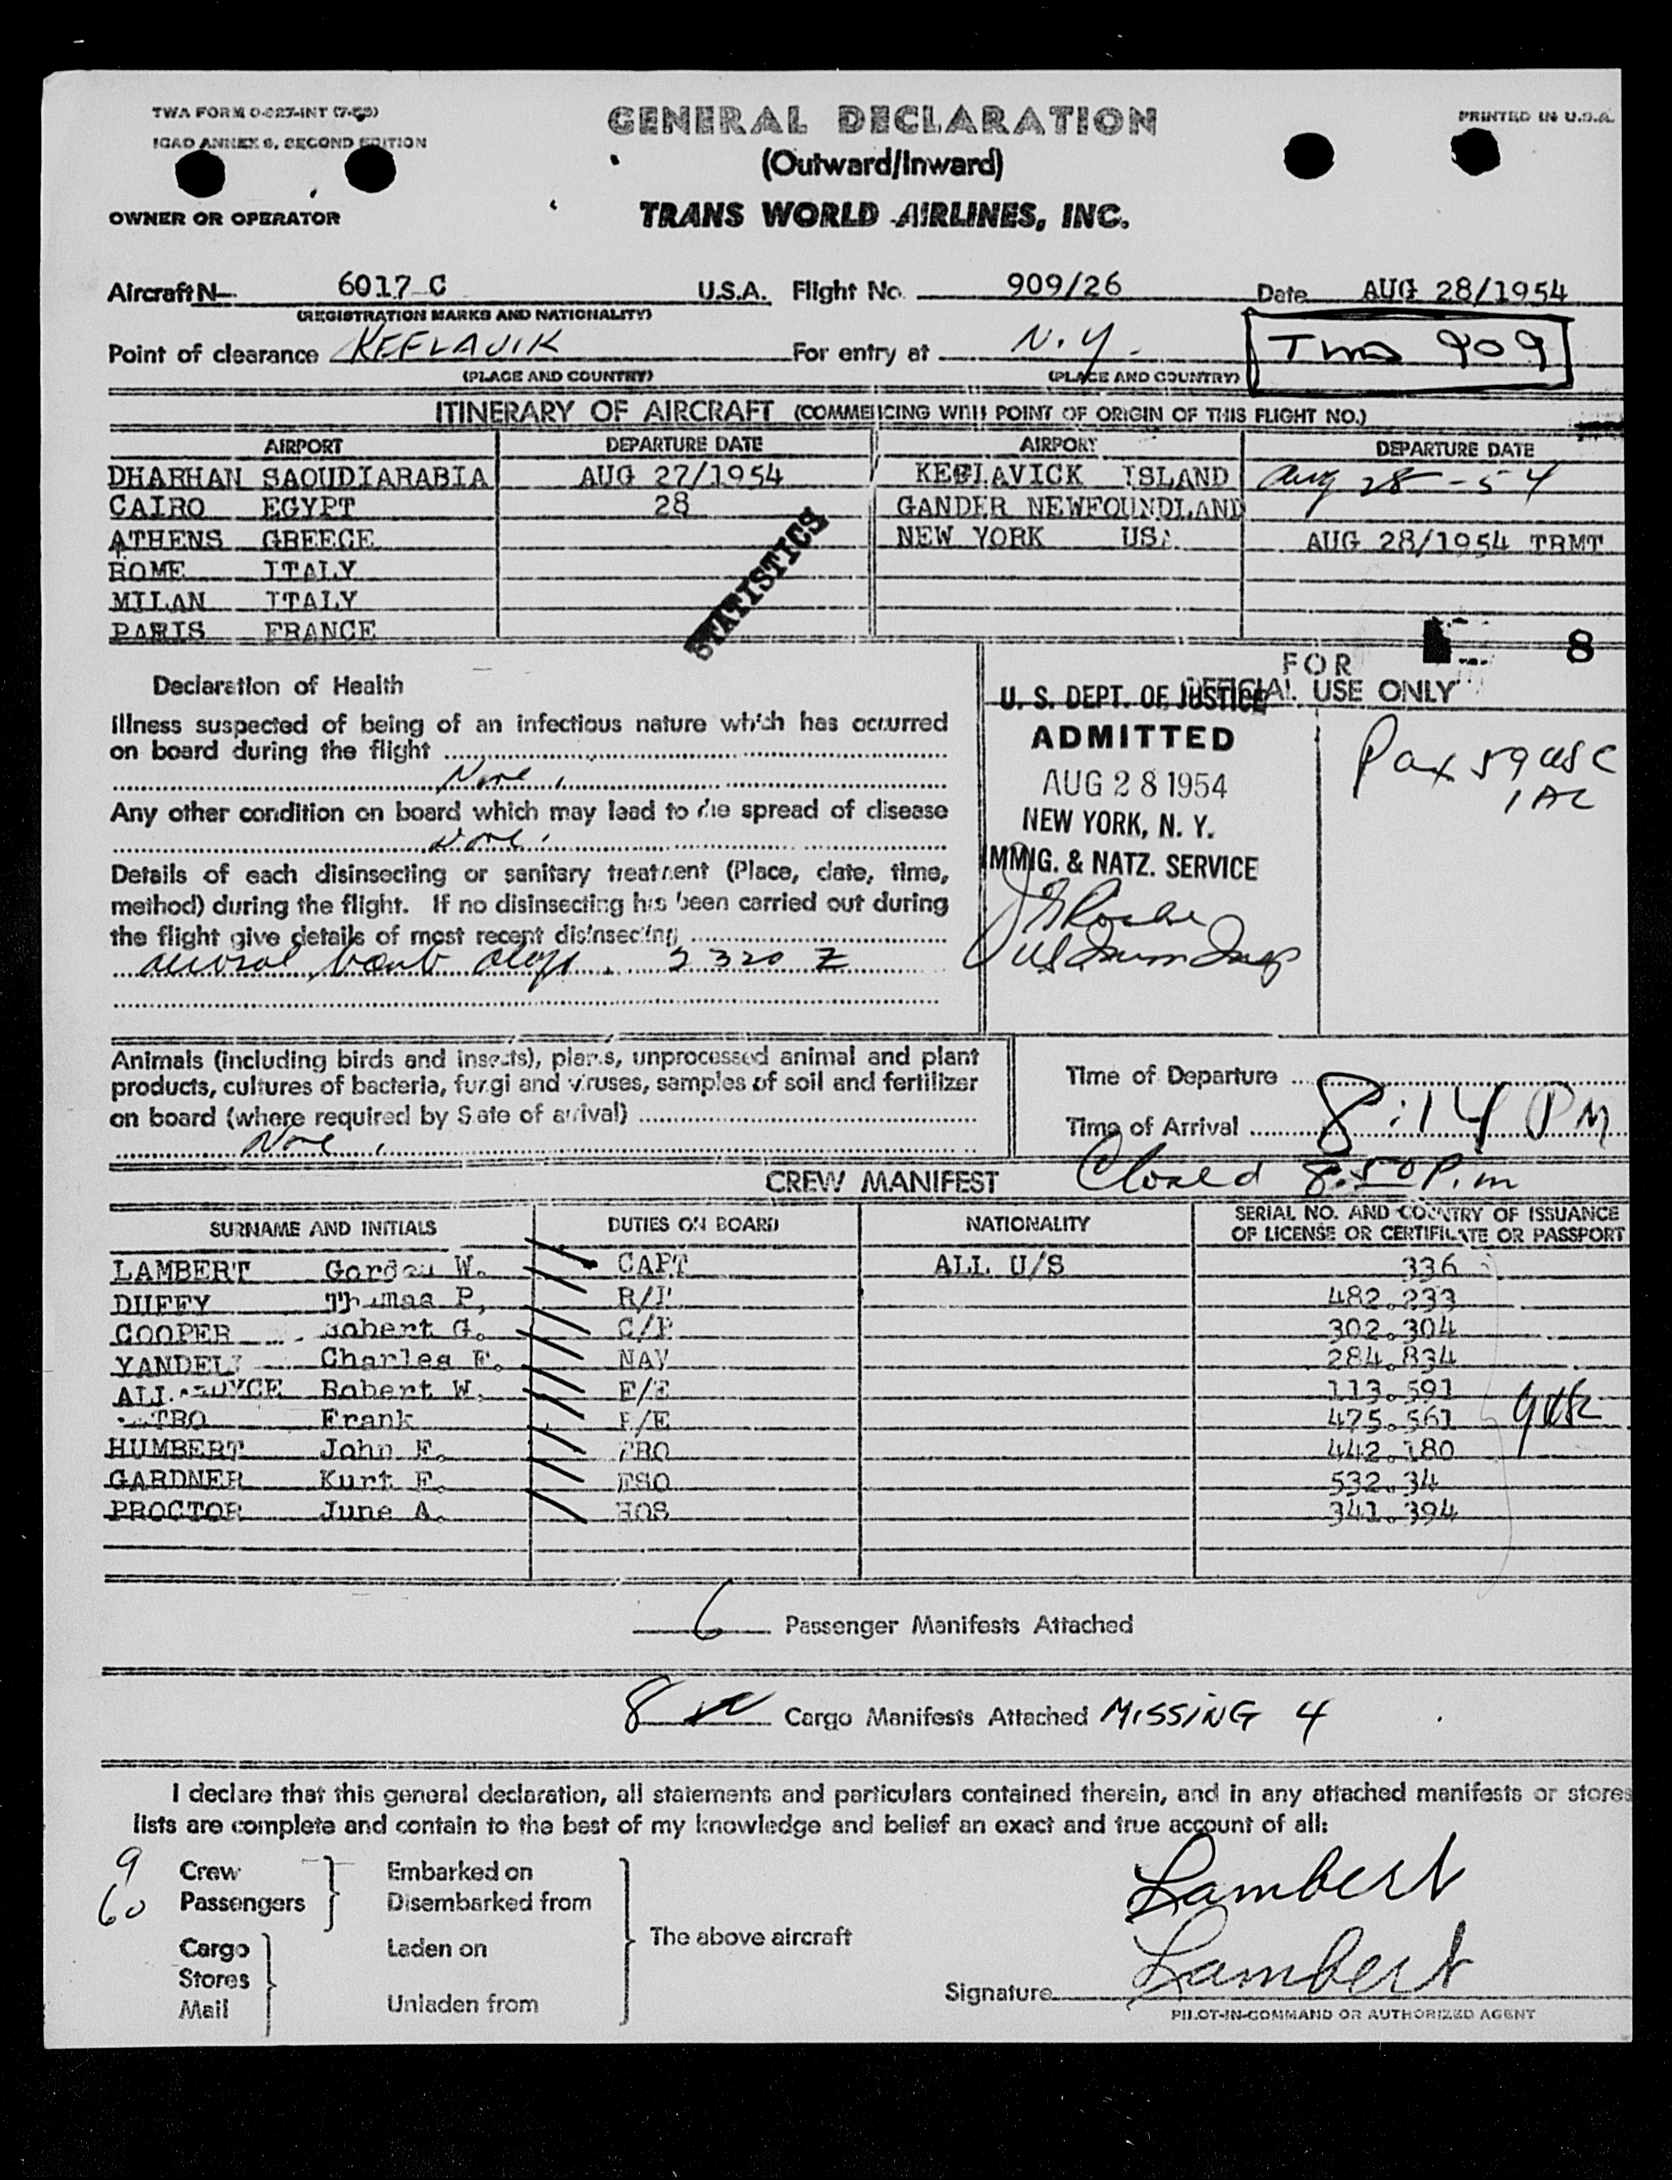 TWA FORM O-827-INT (7-53)
ICAO ANNEX 9, SECOND EDITION
GENERAL DECLARATION
(Outward/Inward)
PRINTED IN U.S.A.
OWNER OR OPERATOR
TRANS WORLD AIRLINES, INC.
Aircraft N- 6017 C U.S.A. Flight No. 909/26 Date AUG 28/1954
(REGISTRATION MARKS AND NATIONALITY)
Point of clearance KEFLAVIK For entry at N.Y. TWA 909
(PLACE AND COUNTRY) (PLACE AND COUNTRY)
ITINERARY OF AIRCRAFT (COMMENCING WITH POINT OF ORIGIN OF THIS FLIGHT NO.)
AIRPORT DEPARTURE DATE AIRPORT DEPARTURE DATE
DHARHAN SAOUDIARABIA AUG 27/1954 KEFLAVICK ISLAND Aug 28-54
CAIRO EGYPT 28 GANDER NEWFOUNDLAND
ATHENS GREECE NEW YORK USA AUG 28/1954 TRMT
ROME ITALY
MILAN ITALY
PARIS FRANCE
STATISTICS
8
Declaration of Health
FOR
OFFICIAL USE ONLY
Illness suspected of being of an infectious nature which has occurred
on board during the flight
None.
Any other condition on board which may lead to the spread of disease
None.
Details of each disinsecting or sanitary treatment (Place, date, time,
method) during the flight. If no disinsecting has been carried out during
the flight give details of most recent disinsecting
bomb 2320 Z
U. S. DEPT. OF JUSTICE
ADMITTED
AUG 28 1954
NEW YORK, N. Y.
IMMIG. & NATZ. SERVICE
US Immn Insp
Pax 59 USC
1 AC
Animals (including birds and insects), plants, unprocessed animal and plant
products, cultures of bacteria, fungi and viruses, samples of soil and fertilizer
on board (where required by State of arrival)
None.
Time of Departure
Time of Arrival 8:14 PM
Closed 8:50 P.m
CREW MANIFEST
SURNAME AND INITIALS DUTIES ON BOARD NATIONALITY SERIAL NO. AND COUNTRY OF ISSUANCE
OF LICENSE OR CERTIFICATE OR PASSPORT
LAMBERT Gordon W. CAPT ALL U/S 336
DUFFY Thomas P. 482.233
COOPER Robert G. 302.304
YANDELL Charles F. NAV 284.834
Robert W. F/E 113.591
Frank F/E 475.561
HUMBERT John F. 442.180
GARDNER Kurt F. FSO 532.34
PROCTOR June A. HOS 341.394
6 Passenger Manifests Attached
8 Cargo Manifests Attached MISSING 4
I declare that this general declaration, all statements and particulars contained therein, and in any attached manifests or stores
lists are complete and contain to the best of my knowledge and belief an exact and true account of all:
9 Crew Embarked on
60 Passengers Disembarked from
Lambert
Cargo Laden on The above aircraft
Stores
Mail Unladen from
Signature Lambert
PILOT-IN-COMMAND OR AUTHORIZED AGENT